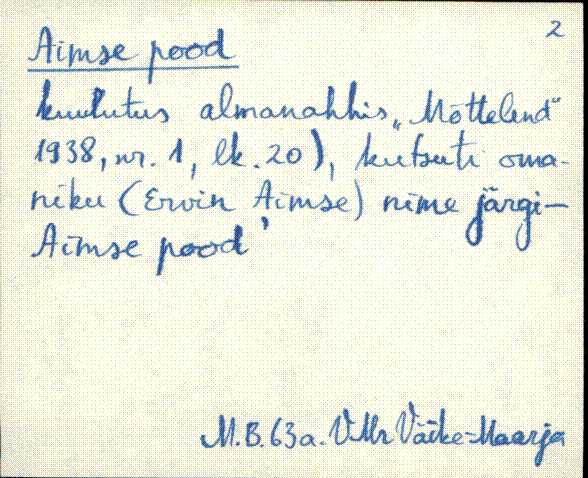 2
Aimse pood
kuulutus almanahhis „Mõttelend"
1938, nr. 1, lk. 20), kutsuti oma-
niku (Ervin Aimse) nime järgi—
Aimse pood'
M.B. 63a. VMr Väike-Maarja